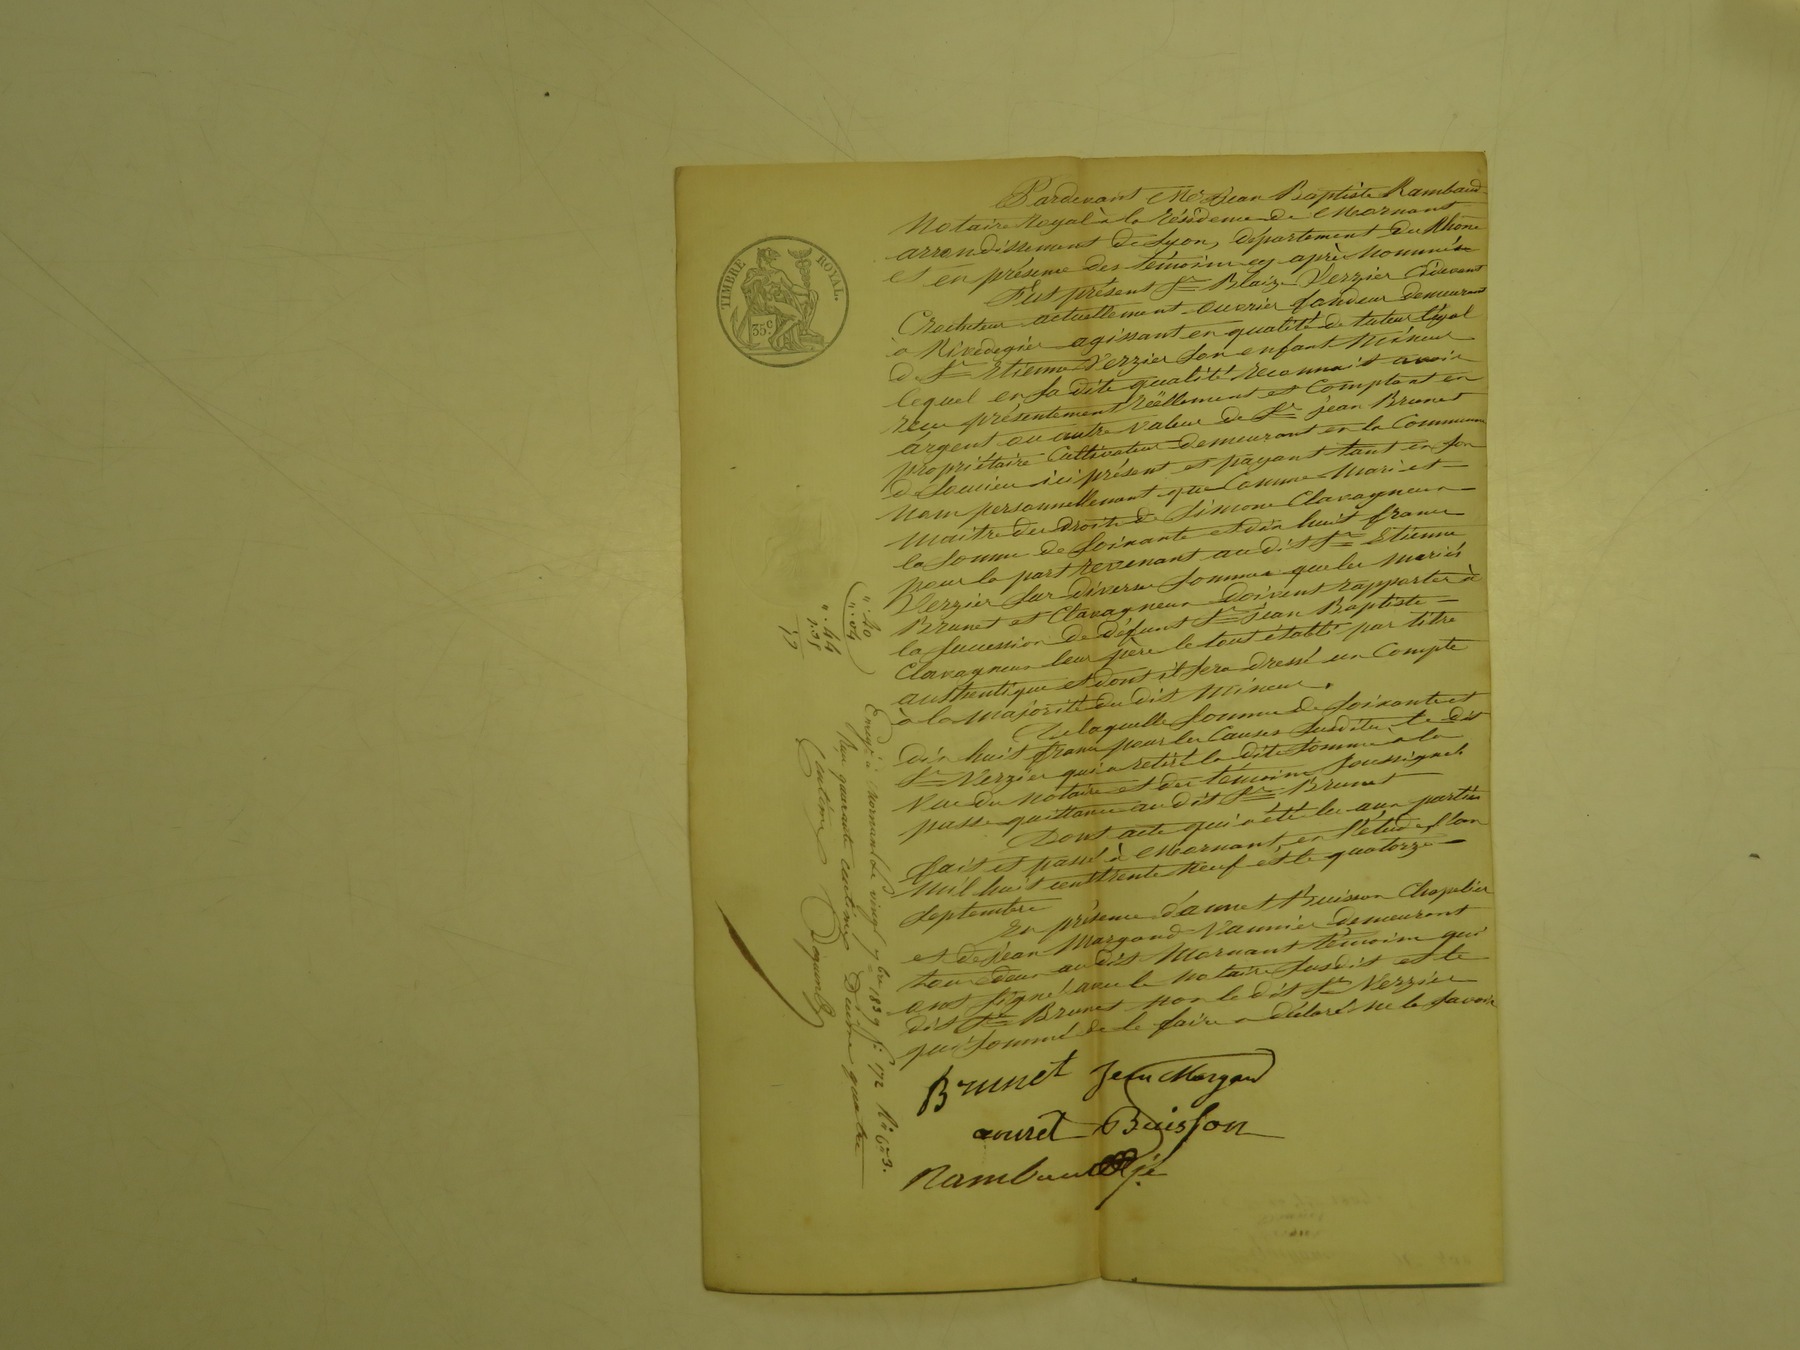 TIMBRE ROYAL.
35 c
Pardevant Me Jean Baptiste Rambaud
Notaire Royal à la résidence de Mornant
arrondissement de Lyon, département du Rhône
et en présence des témoins cy après nommés
Fut présent Sr Blaize Verzier cidevant
Crocheteur actuellement ouvrier fondeur demeurant
à Rivedegier agissant en qualité de tuteur légal
de Sr Etienne Verzier son enfant mineur
lequel en sa dite qualité reconnait avoir
reçu présentement réellement et comptant en
argent ou autre valeur de Sr jean Brunet
propriétaire Cultivateur demeurant en la Commune
de Soucieu ici présent et payant tant en son
nom personnellement que comme mari et
maitre des droits de Simone Clavagneux
la somme de soixante et dix huit francs
pour la part revenant au dit Sr Etienne
Verzier sur diverses sommes que les mariés
Brunet et Clavagneux doivent rapporter à
la succession de défunt Sr Jean Baptiste
Clavagneux leur père le tout établi par titre
authentique et dont il sera dressé un Compte
à la majorité du dit mineur.
De laquelle somme de soixante et
dix huit francs pour les Causes susdites, le dit
Sr Verzier qui a retiré la dite somme à la
vue du notaire et des témoins soussignés
passe quittance au dit Sr Brunet
Dont acte qui a été lu aux parties
fait et passé à Mornant, en l'étude l'an
mil huit cent trente neuf et le quatorze
septembre
En présence d'annet Buisson Chapelier
et de Jean Margand Vannier demeurant
tous deux au dit Mornant témoins qui
ont signé avec le notaire susdit et le
dit Sr Brunet non le dit Sr Verzier
qui sommé de le faire a déclaré ne le savoir
Brunet Jean Margand
annet Buisson
Rambaud
". 40
". 04
". 44
1.35
Enregé à Mornant le vingt 7bre 1839 fo 172 No 673.
Reçu quarante centimes Dixme quatre
centimes